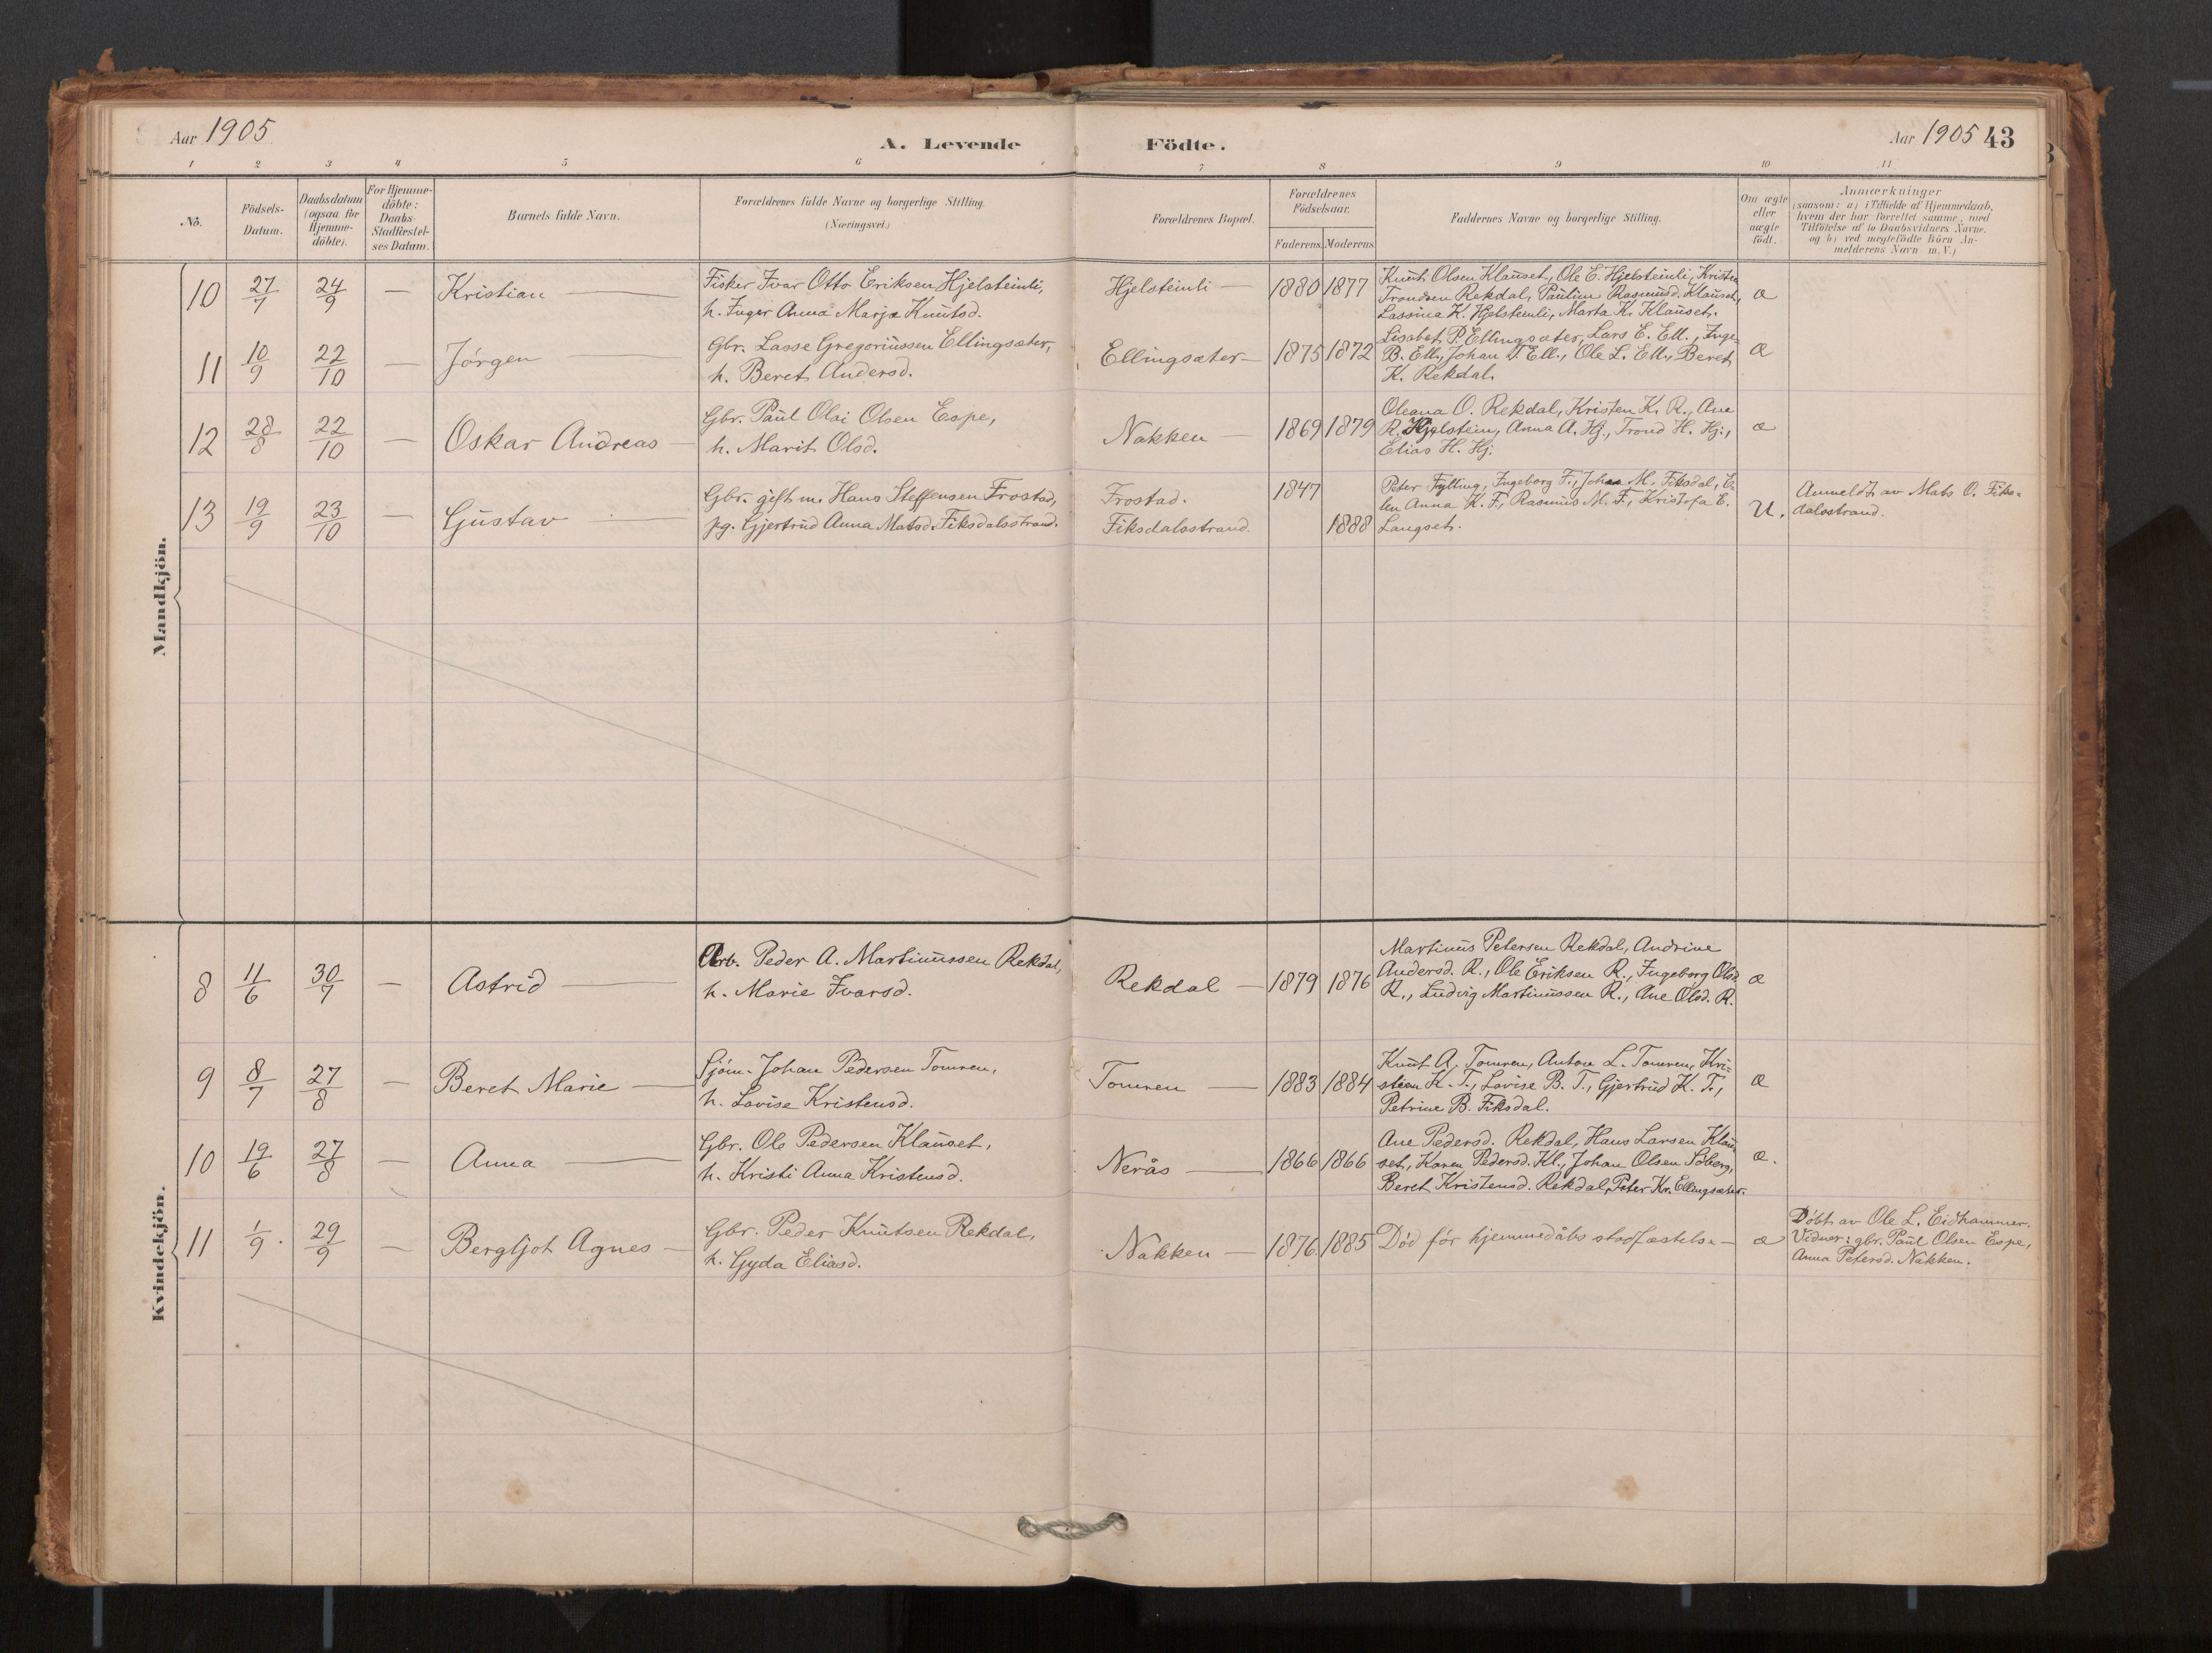 Aar 1905
A. Levende Födte.
Aar 1905 43
1 2 3 4 5 6 7 8 9 10 11
No.
Födsels-
Datum.
Daabsdatum
(ogsaa for
Hjemme-
döbte).
For Hjemme-
döbte:
Daabs-
Stadfæstel-
ses Datum.
Barnets fulde Navn.
Forældrenes fulde Navne og borgerlige Stilling.
(Næringsvei.)
Forældrenes Bopæl.
Forældrenes
Födselsaar.
Faderens. Moderens.
Faddernes Navne og borgerlige Stilling.
Om ægte
eller
uægte
födt.
Anmærkninger
(saasom: a) i Tilfælde af Hjemmedaab,
hvem der har forrettet samme, med
Tilföielse af to Daabsvidners Navne.
og b) ved uægtefödte Börn An-
melderens Navn m.V.)
Mandkjön.
10 27/7 24/9 — Kristian —
Fisker Ivar Otto Eriksen Hjelsteinli,
h. Inger Anna Marja Knutsd.
Hjelsteinli — 1880 1877
Knut Olsen Klauset, Ole E. Hjelsteinli, Kristen
Trondsen Rekdal, Pauline Rasmusd. Klauset,
Lassina K. Hjelsteinli, Marta K. Klauset.
æ
11 10/9 22/10 — Jørgen
Gbr. Lasse Gregoriussen Ellingsæter,
h. Beret Andersd.
Ellingsæter — 1875 1872
Lisabet P. Ellingsæter, Lars E. Ell., Inge-
B. Ell., Johan T Ell., Ole L. Ell., Beret
K. Rekdal.
æ
12 28/8 22/10 — Oskar Andreas —
Gbr. Paul Olai Olsen Espe,
h. Marit Olsd.
Nakken — 1869 1879
Oleana O. Rekdal, Kristen K. R., Ane
R. Hjelstein, Anna A. Hj., Trond H. Hj.,
Elias H. Hj.
æ
13 19/9 23/10 — Gustav
Gbr. gift m. Hans Steffensen Frostad,
pg. Gjertrud Anna Matsd. Fiksdalsstrand.
Frostad. 1847
Fiksdalsstrand. 1888
Peter Fylling, Ingeborg F., Johan M. Fiksdal, E-
len Anna K. F., Rasmus M. F., Kristofa E.
Langset.
U.
Anmeldt av Mats O. Fiks-
dalsstrand.
Kvindekjön.
8 11/6 30/7 — Astrid —
Arb. Peder A. Martinussen Rekdal,
h. Marie Ivarsd.
Rekdal — 1879 1876
Martinus Petersen Rekdal, Andrine
Andersd. R., Ole Eriksen R., Ingeborg Olsd.
R., Ludvig Martinussen R., Ane Olsd. R.
æ
9 8/7 27/8 — Beret Marie —
Sjøm. Johan Pedersen Tomren,
h. Lovise Kristensd.
Tomren — 1883 1884
Knut A. Tomren, Anton L. Tomren, Kri-
stian K. T., Lovise B. T., Gjertrud K. T.,
Petrine B. Fiksdal.
æ
10 19/6 27/8 — Anna —
Gbr. Ole Pedersen Klauset,
h. Kristi Anna Kristensd.
Nerås — 1866 1866
Ane Pedersd. Rekdal, Hans Larsen Klau-
set, Karen Pedersd. Kl., Johan Olsen Solberg,
Beret Kristensd. Rekdal, Peter Kr. Ellingsæter.
æ.
11 1/9. 29/9 — Bergljot Agnes —
Gbr. Peder Knutsen Rekdal,
h. Gyda Eliasd.
Nakken — 1876 1885
Død før hjemmedåbs stadfæstelse —
æ
Døbt av Ole L. Eidhammer.
Vidner: gbr. Paul Olsen Espe,
Anna Petersd. Nakken.